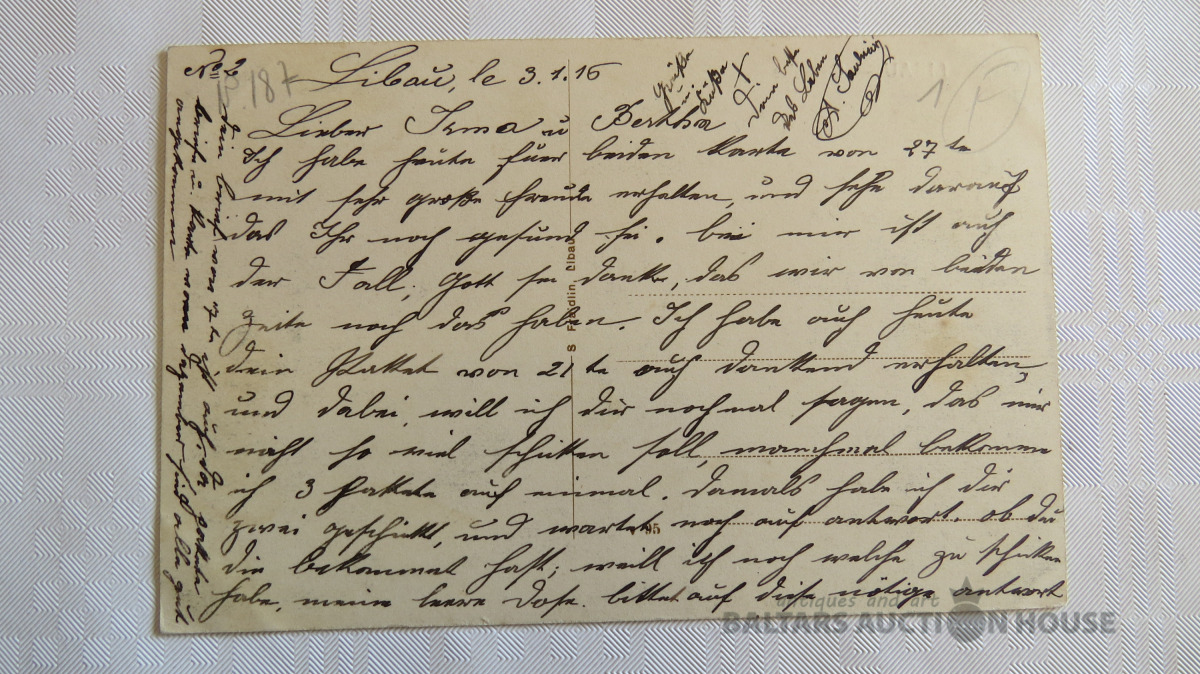 No 2
P. 187
Libau, le 3.1.16
Grüße
u.
Küße
Lieber Irma u Bertha
Ich habe heute fuer beiden Karte von 27 te
mit sehr große Freude erhalten, und sehe darauf
das Ihr noch gesund sei. bei mir ist auch
der Fall, Gott sei danke, das wir von beiden
zeite noch das haben. Ich habe auch heute
dein Pakket von 21 te auch dankend erhalten,
und dabei will ich dir nochmal sagen, das mir
nicht so viel schikken soll, manchmal bekomme
ich 3 Pakkete auf einmal. damals habe ich dir
zwei geschickt, und wartet noch auf antwort. ob du
die bekommel hast; weill ich noch welche zu schikken
habe, meine leere dose. bittet auf diese nötige antwort
dein brief von te ist auch da, pakete
briefe u. Karte vom dezember sind alle gut
angekommen
S Freidlin, Libau
95
1
F
antiques and art
BALTARS AUCTION HOUSE